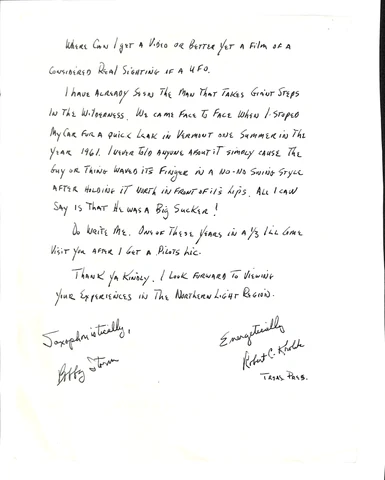 Where Can I get a Video or Better yet a Film of a
Considered Real Sighting of a UFO.
I have already seen the Man that takes Giant Steps
in the Wilderness. We came Face to Face when I stoped
My Car for a quick Leak in Vermont one Summer in the
year 1961. I never told anyone about it simply cause the
Guy or Thing waved its Finger in a No-No Swing Style
after holding it in front of it's Lips. All I can
Say is that He was a Big Sucker!
Do write Me. One of these years in a 1/3 I'll come
Visit you after I get a Pilots Lic.
Thank ya kindly. I look forward to viewing
your Experiences in the Northern Light Region.
Saxophonistically,
Bobby Storm
Energetically
Robert C.